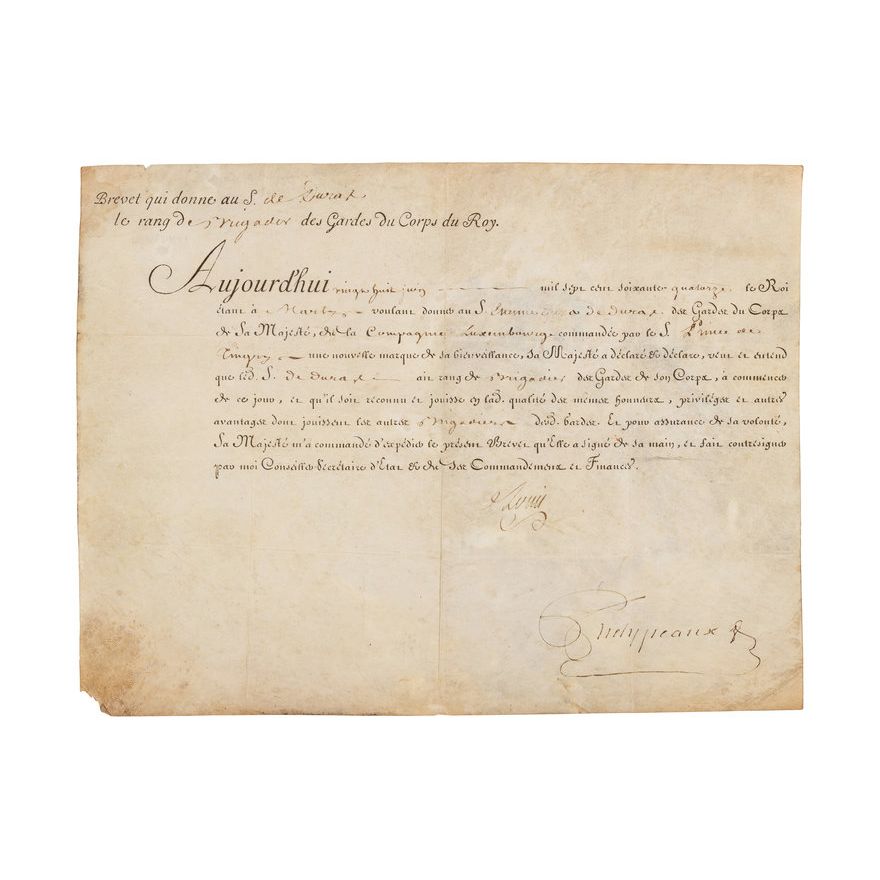 Brevet qui donne au S. de Durat
le rang de Brigadier des Gardes du Corps du Roy.
Aujourd'hui vingt huit juin mil sept cent soixante quatorze le Roi
étant à Marly voulant donner au S. de Durat des Gardes du Corps
de Sa Majesté, de la Compagnie Luxembourg commandée par le S. Prince de
Tingry une nouvelle marque de sa bienveillance, Sa Majesté a déclaré & déclare, veut et entend
que led. S. de Durat ait rang de Brigadier des Gardes de son Corps, à commencer
de ce jour, et qu'il soit reconnu et jouisse en lad. qualité des mêmes honneurs, privilèges et autres
avantages dont jouissent les autres Brigadiers desd. Gardes. Et pour assurance de sa volonté,
Sa Majesté m'a commandé d'expédier le présent Brevet qu'Elle a signé de sa main, et fait contresigner
par moi Conseiller Secrétaire d'Etat & de ses Commandemens et Finances.
Louis
Phelypeaux